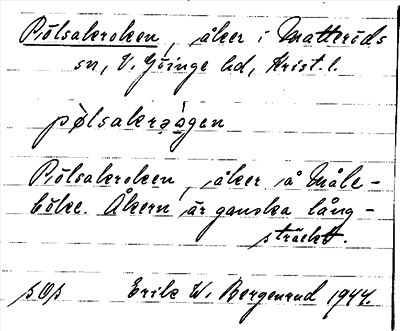 Pölsakroken, åker i Matteröds
sn, V. Göinge hd, Krist. l.
pølsakrågen
Pölsakroken, åker å Måle-
böke. Åkern är ganska lång-
sträckt.
Erik W. Bergenrud 1944.